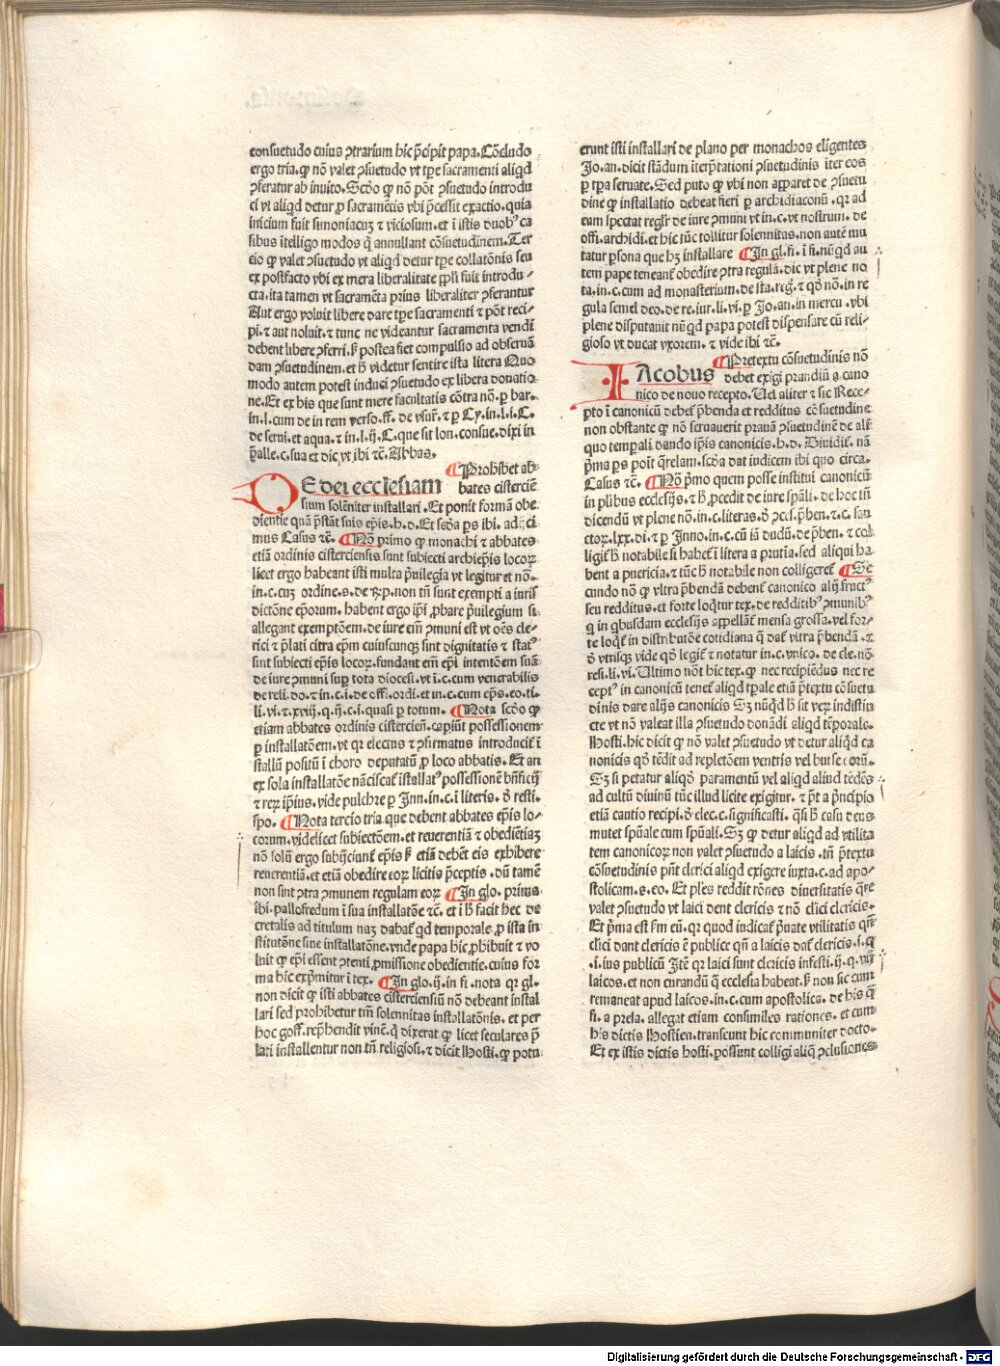 consuetudo cuius ꝯtrarium hic p̄cipit papa. Cōcludo
ergo tria. qꝫ nō valet ꝯsuetudo vt tp̄e sacramenti aliqd
ꝯferatur ab inuito. Scd̄o qꝫ nō pōt ꝯsuetudo introdu
ci vt aliqd detur ꝓ sacramētis vbi p̄cessit exactio. quia
inicium fuit simoniacuꝫ ⁊ viciosum. et ī istis duobꝰ ca
sibus ītelligo modos q̄ annullant cōsuetudinem. Ter
cio qꝫ valet ꝯsuetudo vt aliqd detur tp̄e collatōnis seu
ex postfacto vbi ex mera liberalitate pp̄li fuit introdu/
cta. ita tamen vt sacramēta prius liberaliter ꝯferantur
Aut ergo voluit libere dare tp̄e sacramenti ⁊ pōt reci/
pi. ⁊ aut noluit. ⁊ tunc ne videantur sacramenta vendi
debent libere ꝯferri. sꝫ postea fiet compulsio ad obseruā
dam ꝯsuetudinem. et h̄ videtur sentire ista litera Quo
modo autem potest induci ꝯsuetudo ex libera donatio
ne. Et ex his que sunt mere facultatis cōtra nō. ꝑ bar.
in. l. cum de in rem verso. ff. de vsur. ⁊ ꝑ Cy. in. l. i. C.
de serui. et aqua. ⁊ in. l. ij. C. que sit lon. consue. dixi in
p̄alle. c. sua et dic vt ibi ⁊c̄. Abbas.
¶Prohibet ab
DE dei ecclesiam bates cisterciē
sium solēniter installari. Et ponit formā obe
dientie quā p̄stāt suis ep̄is. h. d. Et sc̄da ps ibi. adijci
mus Casus ⁊c̄. ¶Nō primo qꝫ monachi ⁊ abbates
etiā ordinis cisterciensis sunt subiecti archiep̄is locoꝝ
licet ergo habeant isti multa p̄uilegia vt legitur et nō.
in. c. cuꝫ ordine. s. de rescꝝp. non tn̄ sunt exempti a iuris
dictōne ep̄orum. habent ergo ip̄i ꝓbare p̄uilegium si
allegant exemptōem. de iure em̄ ꝯmuni est vt oēs cle/
rici ⁊ p̄lati citra ep̄m cuiuscunqꝫ sunt dignitatis ⁊ statꝰ
sint subiecti ep̄is locoꝝ. fundant em̄ ep̄i intentōem suā
de iure ꝯmuni suꝑ tota diocesi. vt ī. c. cum venerabilis
de reli. do. ⁊ in. c. i. de offi. ordi. et in. c. cum ep̄s. eo. ti.
li. vi. ⁊ xviij. q. ij. c. i. quasi ꝑ totum. ¶Nota scd̄o qꝫ
etiam abbates ordinis cistercien̄. capiūt possessionem
ꝑ installatōem. vt qꝛ electus ⁊ ꝯfirmatus introducit̄ ī
stallū positū ī choro deputatū ꝓ loco abbatis. Et an
ex sola installatōe nāciscat̄ īstallatꝰ possessionē bn̄ficij
⁊ reꝝ ip̄ius. vide pulchre ꝑ Inn. in. c. ī literis. ꝺ resti.
spo. ¶Nota tercio tria que debent abbates ep̄is lo/
corum. videlicet subiectōem. et reuerentiā ⁊ obediētiaꝫ
nō solū ergo subijciunt̄ ep̄is sꝫ etiā debēt eis exhibere
reuerentiā. et etiā obedire eoꝝ licitis p̄ceptis. dū tamē
non sint ꝯtra ꝯmunem regulam eoꝝ ¶In glo. prima
ibi. pallofredum ī sua installatōe ⁊c̄. et ī h̄ facit hec de
cretalis ad titulum naꝫ dabat̄ qd temporale ꝓ ista in
stitutōne siue installatōne. vnde papa hic ꝓhibuit ⁊ vo
luit qꝫ ep̄i essent ꝯtenti ꝓmissione obedientie. cuius for
ma hic exp̄mitur ī tex. ¶In glo. ij. in fi. nota qꝛ gl.
non dicit qꝫ isti abbates cisterciensiū nō debeant instal
lari sed prohibetur tm̄ solennitas installatōnis. et per
hoc goff. rep̄hendit vincē. q dixerat qꝫ licet seculares p̄
lati installentur non tn̄ religiosi. ⁊ dicit Hosti. qꝫ potu
erunt isti installari de plano per monachos eligentes
Jo. an. dicit stādum īterp̄tationi ꝯsuetudinis iter eos
ꝑ tp̄a seruate. Sed puto qꝫ vbi non apparet de ꝯsuetu
dine qꝫ installatio debeat fieri ꝑ archidiaconū. qꝛ ad
eum spectat regr̄r de iure ꝯmuni vt in. c. vt nostrum. de
offi. archidi. et hic tūc tollitur solennitas. non autē mu
tatur ꝑsona que hꝫ installare ¶In gl. fi. ī fi. nūqd au
tem pape teneant̄ obedire ꝯtra regulā. dic vt plene no
ta. in. c. cum ad monasterium. de sta. reḡ. ⁊ qd̄ nō. in re
gula semel deo. de re. iur. li. vi. ꝑ Jo. an. in mercu. vbi
plene disputauit nūqd papa potest dispensare cū reli/
gioso vt ducat vxorem. ⁊ vide ibi ⁊c̄.
¶Pretextu cōsuetudinis nō
IAcobus debet exigi prandiū a cano
nico de nouo recepto. Uel aliter ⁊ sic Rece/
pto ī canonicū debet̄ p̄benda et redditus cōsuetudine
non obstante qꝫ nō seruauerit prauā ꝯsuetudinē de ali
quo temp̄ali dando ip̄is canonicis. h. d. Diuidit̄. nā
p̄ma ps poīt q̄relam. sc̄da dat iudicem ibi quo circa.
Casus ⁊c̄. ¶Nō p̄mo quem posse institui canonicū
in plibus ecclesijs. ⁊ h̄ ꝓcedit de iure sp̄ali. de hoc tn̄
dicendū vt plene nō. in. c. literas. ꝺ ꝯces. p̄ben. ⁊ c. san
ctoꝝ. lxx. di. ⁊ ꝑ Inno. in. c. cū iā dudū. de p̄ben. ⁊ col
ligit̄ h̄ notabile si habet̄ ī litera a prutia. sed aliqui ha
bent a puericia. ⁊ tūc h̄ notabile non colligeret̄ ¶Se
cundo nō qꝫ vltra p̄bendā debent̄ canonico alij fructꝰ
seu redditus. et forte loqtur tex. de redditibꝰ ꝯmunibꝰ
q in qbusdam ecclesijs appellāt̄ mensa grossa. vel for/
te loqt̄ in distributōe cotidiana q dat̄ vltra p̄bendā. ⁊
ꝺ vtrisqꝫ vide qd̄ legit̄ ⁊ notatur in. c. vnico. de cle. nō
resi. li. vi. Ultimo nōt hic tex. qꝫ nec recipiēdus nec re
ceptꝰ in canonicū tenet̄ aliqd tp̄ale etiā p̄textu cōsuetu
dinis dare alijs canonicis Sꝫ nūqd h̄ sit veꝝ indistin
cte vt nō valeat illa ꝯsuetudo donādi aliqd tp̄orale.
Hosti. hic dicit qꝫ nō valet ꝯsuetudo vt detur aliqd ca
nonicis qd̄ tēdit ad repletōem ventris vel burse eorū.
Sꝫ si petatur aliqd̄ paramentū vel aliqd aliud tēdēs
ad cultū diuinū tūc illud licite exigitur. ⁊ p̄t a p̄ncipio
etiā cautio recipi. ꝺ elec. c. significasti. q̄si h̄ casu deus
mutet sp̄uale cum sp̄uali. Sꝫ qꝫ detur aliqd ad vtilita
tem canonicoꝝ non valet ꝯsuetudo a laicis. tn̄ p̄textu
cōsuetudinis pn̄t clerici aliqd exigere iuxta. c. ad apo/
stolicam. s. eo. Et pl̄es reddit rōnes diuersitatis q̄re
valet ꝯsuetudo vt laici dent clericis ⁊ nō cl̄ici clericis.
Et p̄ma est sm̄ eū. qꝛ quod indicat̄ p̄uate vtilitatis qn̄
cl̄ici dant clericis ē publice qn̄ a laicis dat̄ clericis. i. q
. i. ius publicū Itē qꝛ laici sunt clericis infesti. ij. q. vij
laicos. et non curandū q̄ ecclesia habeat. sꝫ non sic cum
remaneat apud laicos. in. c. cum apostolica. de his q̄
fi. a prela. allegat etiam consimiles rationes. et cum
his dictis Hostien. transeunt hic communiter docto.
Et ex istis dictis hosti. possunt colligi aliq̄ ꝯclusiones
Digitalisierung gefördert durch die Deutsche Forschungsgemeinschaft - DFG